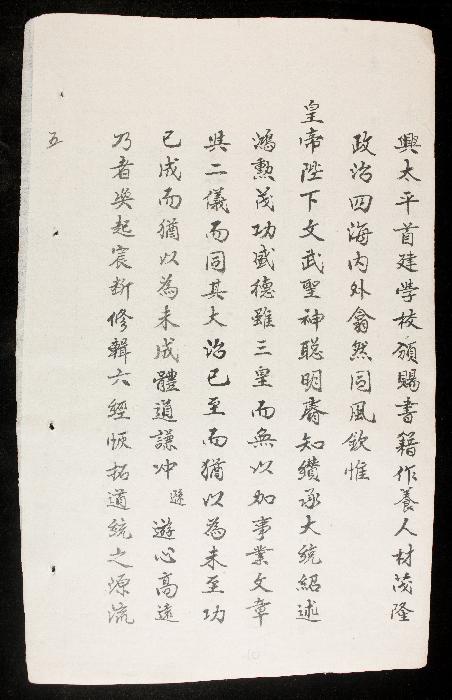 興太平首建學校頒賜書籍作養人材茂隆
政治四海内外翕然同風欽惟
皇帝陛下文武聖神聰明睿知纘承大統紹述
鴻勲茂功盛德雖三皇而無以加事業文章
與二儀而同其大治已至而猶以為未至功
已成而猶以為未成體道謙冲遜遊心高遠
乃者奐起宸斷修輯六經恢拓道統之源流
五